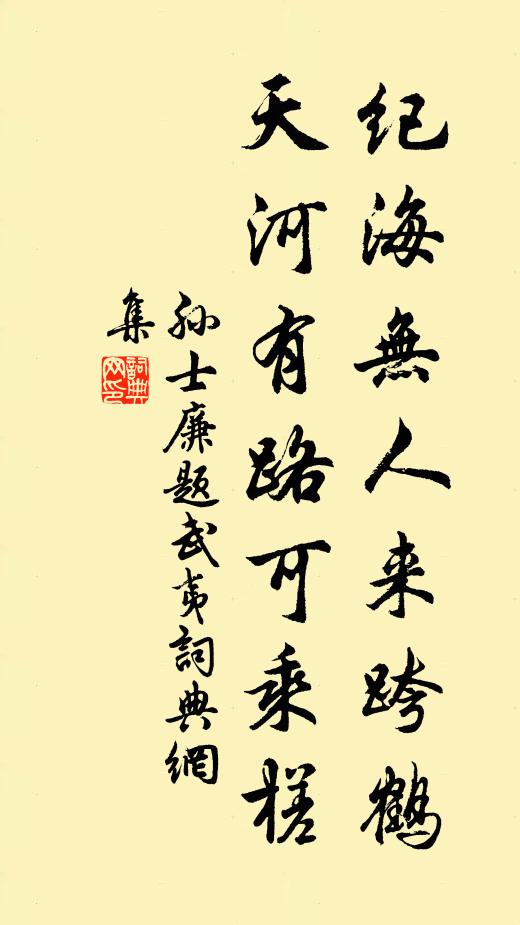 纪海無人来跨鶴
天河有路可乘槎
孙士廉题武夷詞典網
集
詞典
网印